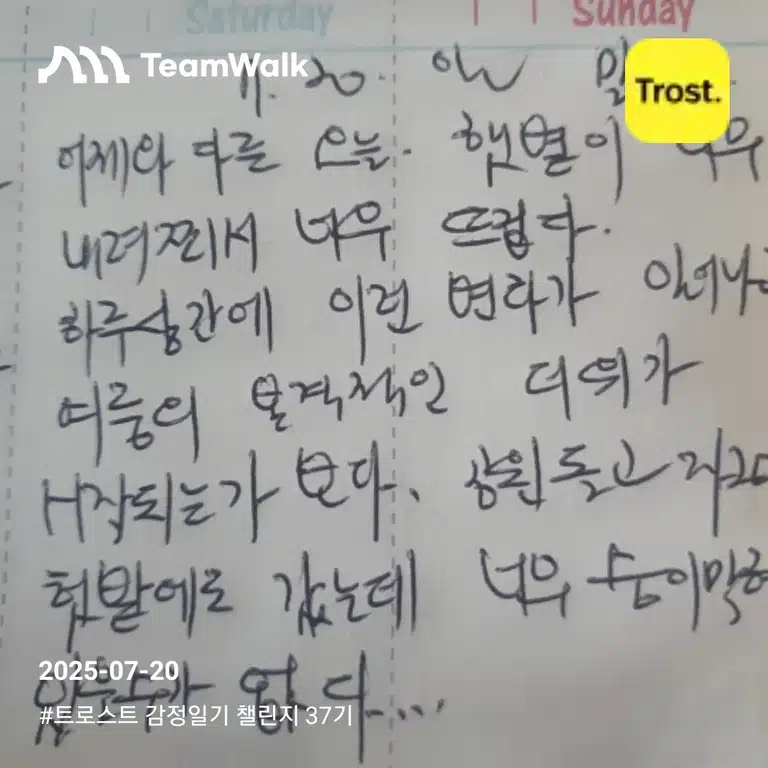 Saturday
Sunday
TeamWalk
Trost.
7. 20.
어제와 다른 오늘. 햇볕이 너무
내려쬐서 너무 뜨겁다.
하루상간에 이런 변화가 일어나
여름의 본격적인 더위가
시작되는가 보다. 공원돌고
텃밭에도 갔는데 너무 숨이막혀
2025-07-20
없다....
#트로스트 감정일기 챌린지 37기